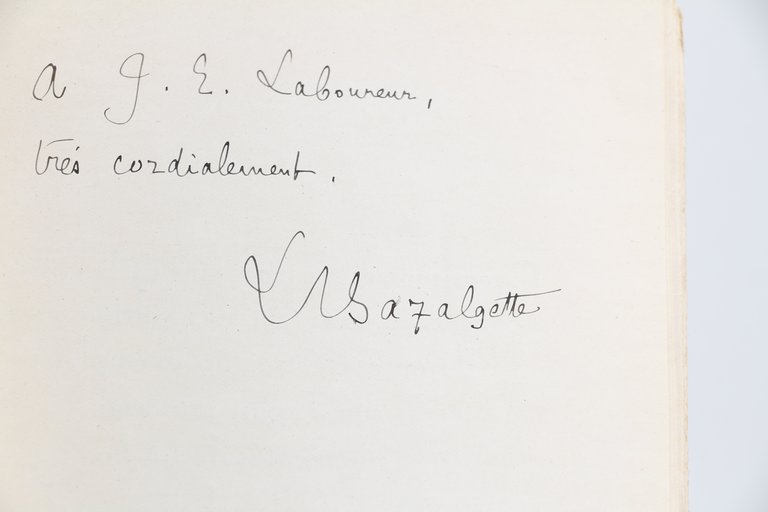 A J. E. Laboureur,
très cordialement.
L Bazalgette